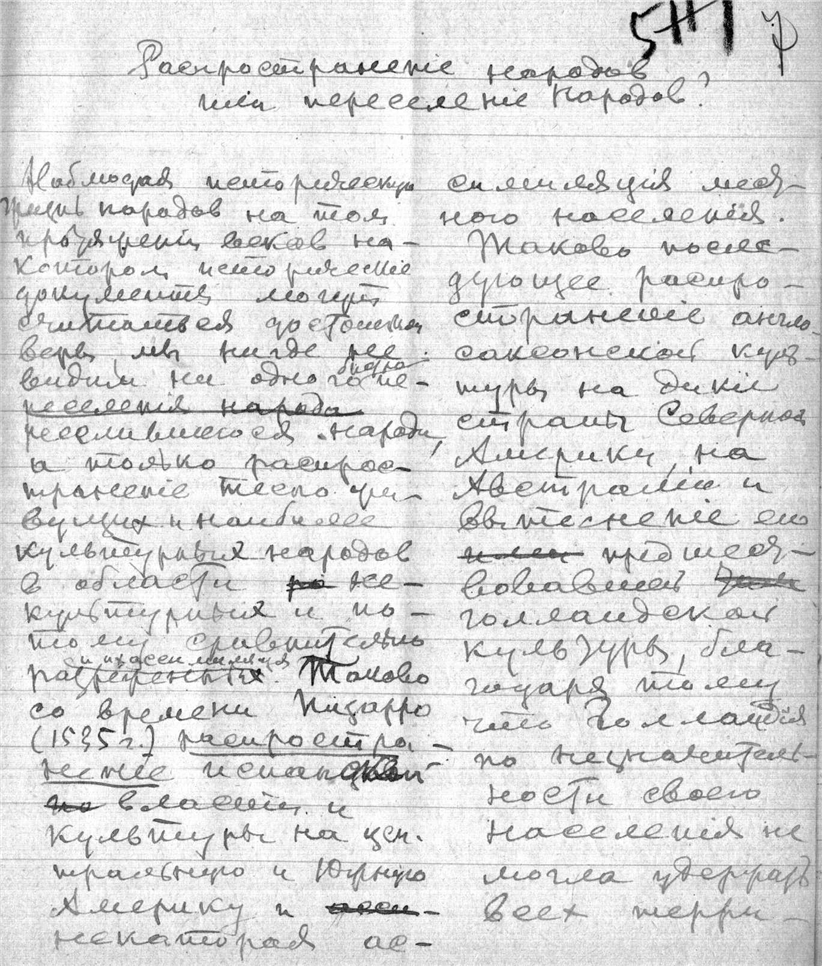 Распространеніе народовъ
или переселеніе народовъ?
Наблюдая историческую
жизнь народов на том
протяженіи веков на-
котором историческіе
документы могут
считаться достоточно
верн мы нигде не
видим ни одного
переселенія народа
реселившегося народа,
а только распрос-
траненіе тесно жи-
вущих и наиболее
культурных народов
в области не-
культурных и по-
тому сравнительно
разреженных. Таково
со времени Пизарро
(1535 г.) распростра-
неніе испанской
власти и
культуры на цен.
тральную и Южную
Америку и
некоторая ас-
симиляція мест-
ного населенія.
Таково после-
дующее распро-
страненіе англо-
саксонской куль-
туры на дикіе
страны Северной
Америки, на
Австралію и
вытесненіе ею
предшест-
вовавшей
голландской
культуры, бла-
годаря тому
что Голландія
по незначитель-
ности своего
населенія не
могла удержать
всех терри-